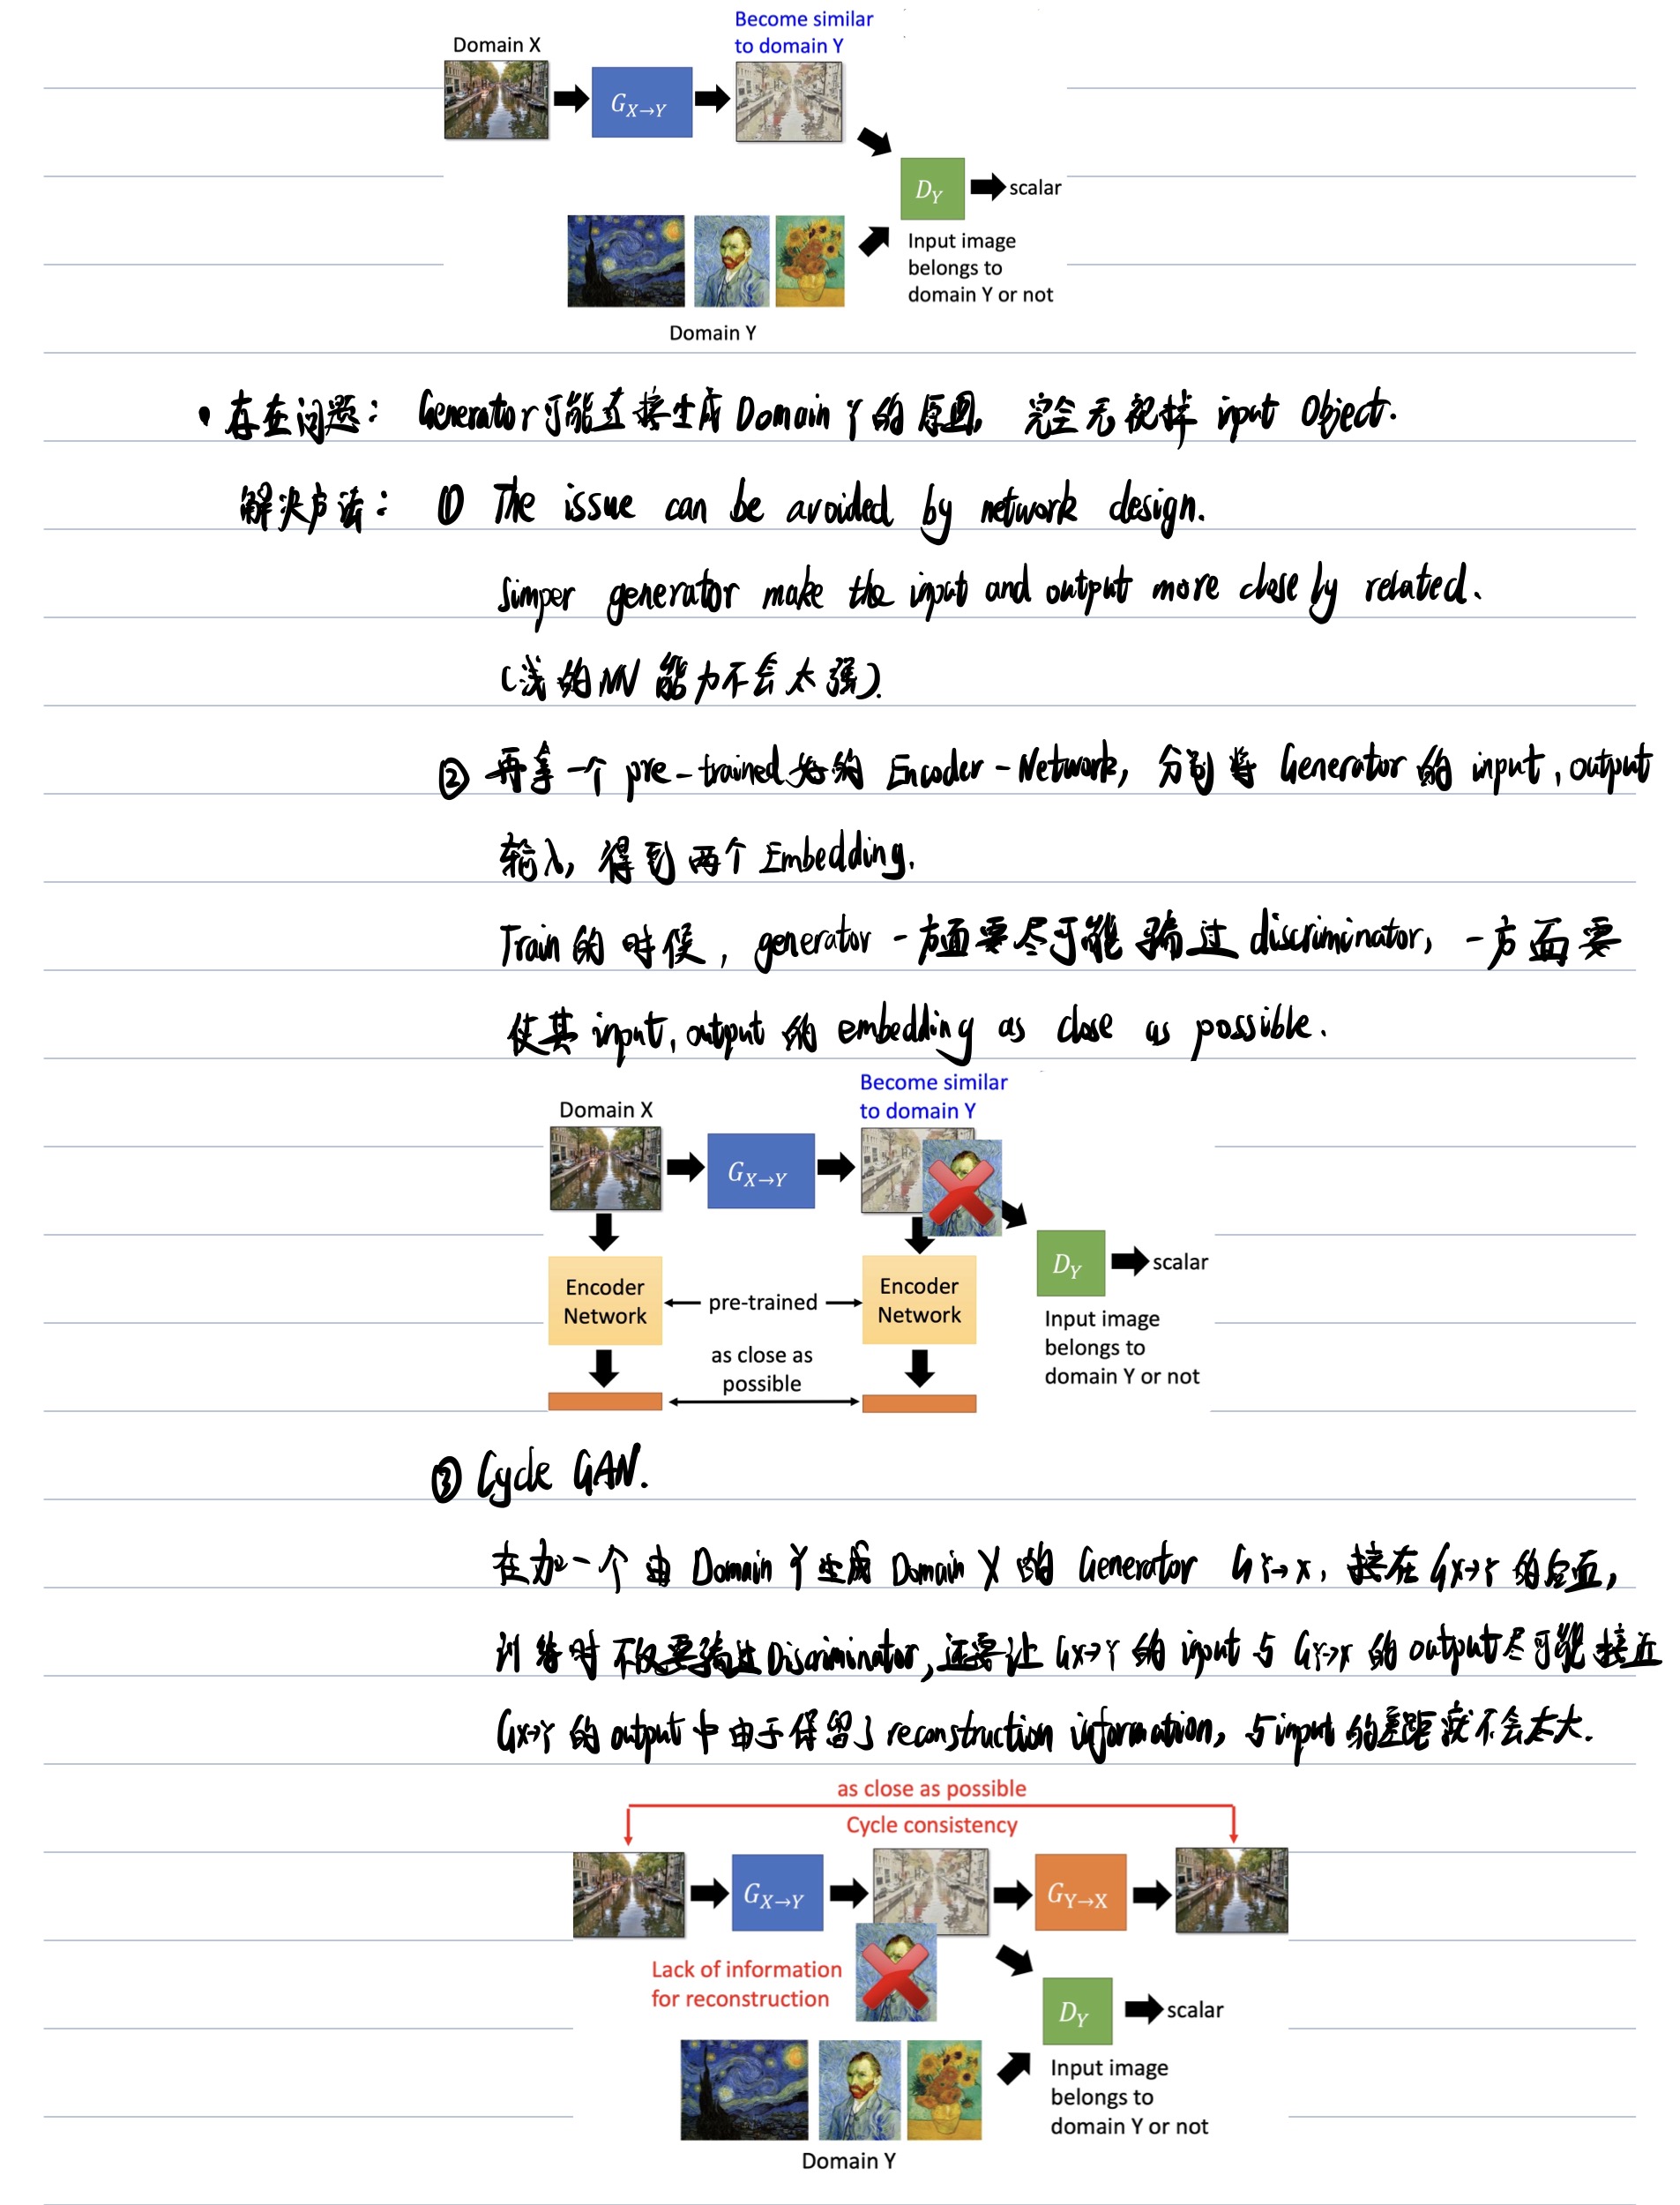 Become similar
to domain Y
Domain X
G X→Y
D Y
scalar
Input image
belongs to
domain Y or not
Domain Y
• 存在问题： Generator可能直接生成 Domain Y 的原图， 完全无视掉 input Object.
解决方法： ① The issue can be avoided by network design.
Simper generator make the input and output more closely related.
(浅的NN 能力不会太强).
② 再拿一个 pre-trained 好的 Encoder-Network, 分别将 Generator 的 input, output
输入, 得到两个 Embedding.
Train 的时候, generator 一方面要尽可能骗过 discriminator, 一方面要
使其 input, output 的 embedding as close as possible.
Become similar
to domain Y
Domain X
G X→Y
D Y
scalar
Encoder
Network
pre-trained
Encoder
Network
Input image
belongs to
domain Y or not
as close as
possible
③ Cycle GAN.
在加一个由 Domain Y 生成 Domain X 的 Generator G Y→X, 接在 G X→Y 的后面,
训练时不仅要骗过 Discriminator, 还要让 G X→Y 的 input 与 G Y→X 的 output 尽可能接近
G X→Y 的 output 中由于保留了 reconstruction information, 与 input 的差距就不会太大.
as close as possible
Cycle consistency
G X→Y
G Y→X
Lack of information
for reconstruction
D Y
scalar
Input image
belongs to
domain Y or not
Domain Y